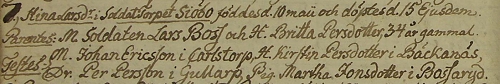 1, Stina Larsdr. i Soldat Torpet Siöbo föddes d. 10 maii och döptes d. 15 Ejusdem.
Parentes: M. Soldaten Lars Boss och H. Britta Persdotter, 34 år gammal.
Testes: M. Johan Ericsson i Carlstorp, H. Kirstin Persdotter i Bäckanäs,
Dr. Per Persson i Gullarp, Pig. Martha Jonsdotter i Bossaryd